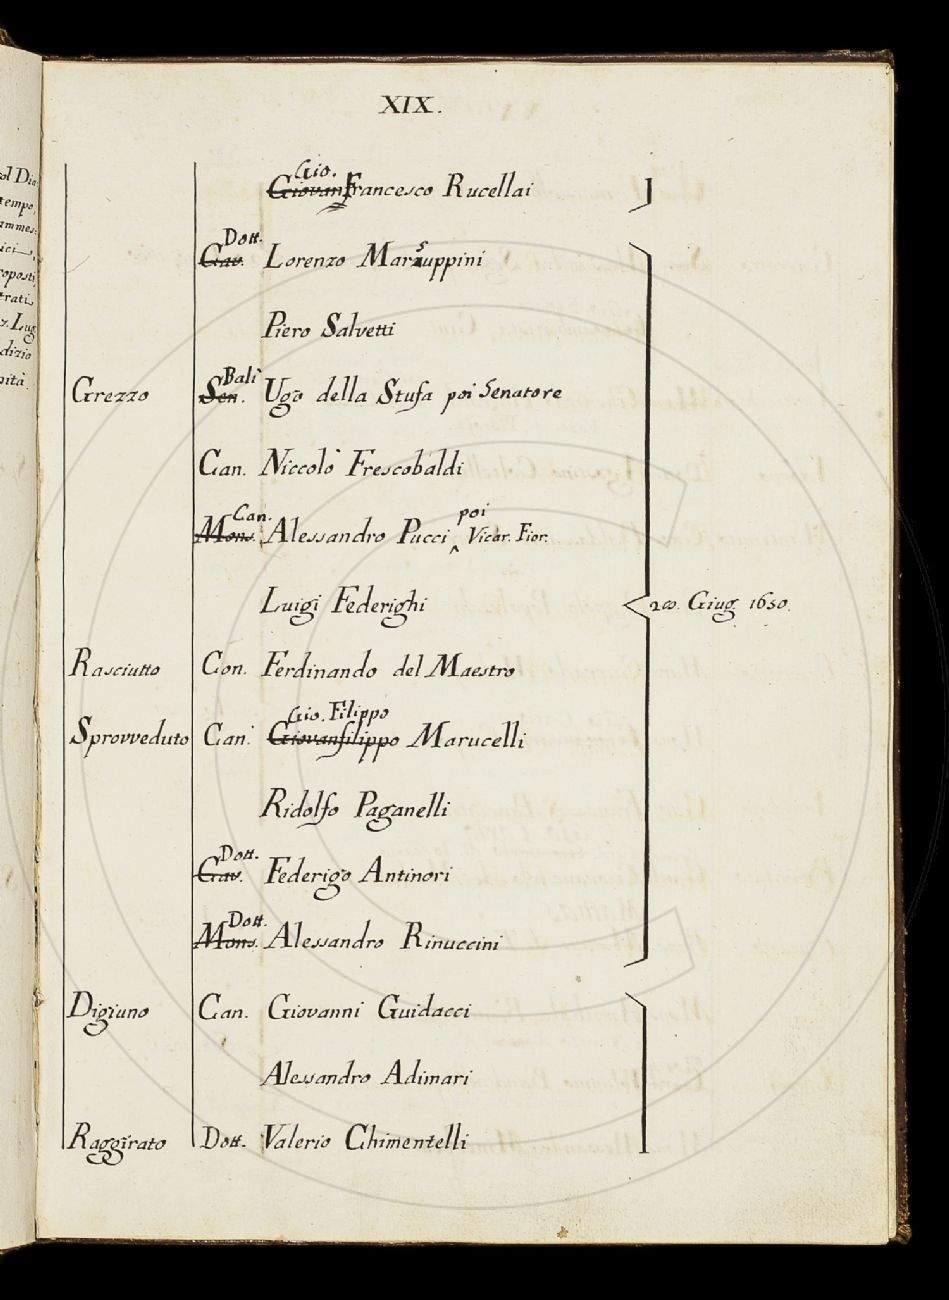 XIX.
Gio.
Giovanfrancesco Rucellai
Dott.
Cav. Lorenzo Marzsuppini
Piero Salvetti
Balì
Grezzo Sen. Ugo della Stufa poi Senatore
Can. Niccolò Frescobaldi
Can. poi
Mons. Alessandro Pucci ^ Vicar. Fior.
Luigi Federighi 20. Giug. 1650.
Rasciutto Con. Ferdinando del Maestro
Gio. Filippo
Sprovveduto Can. Giovanfilippo Marucelli
Ridolfo Paganelli
Dott.
Cav. Federigo Antinori
Dott.
Mons. Alessandro Rinuccini
Digiuno Can. Giovanni Guidacci
Alessandro Adimari
Raggirato Dott. Valerio Chimentelli